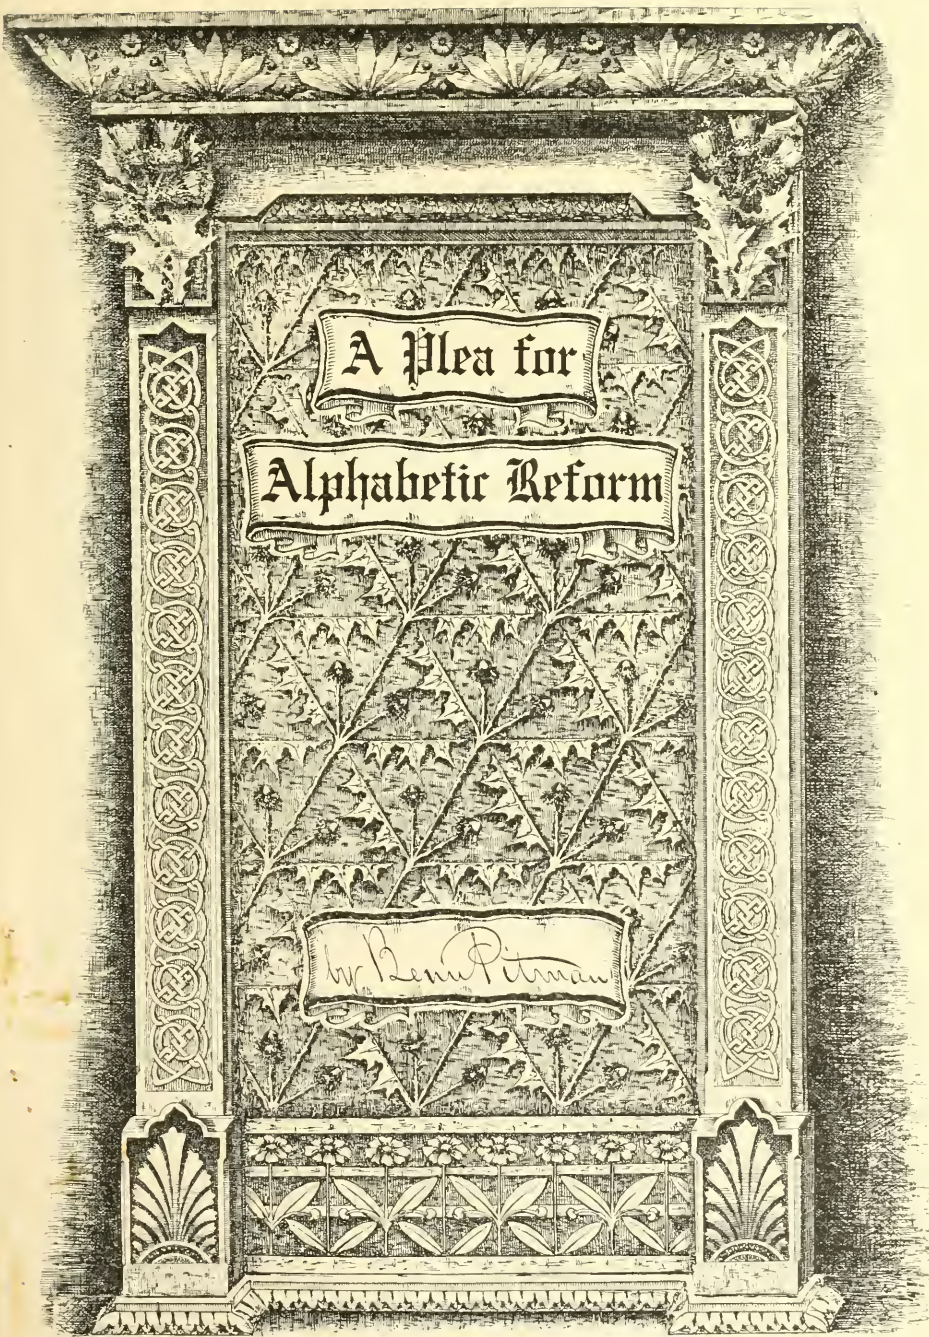 A Plea for
Alphabetic Reform
by Benn Pitman